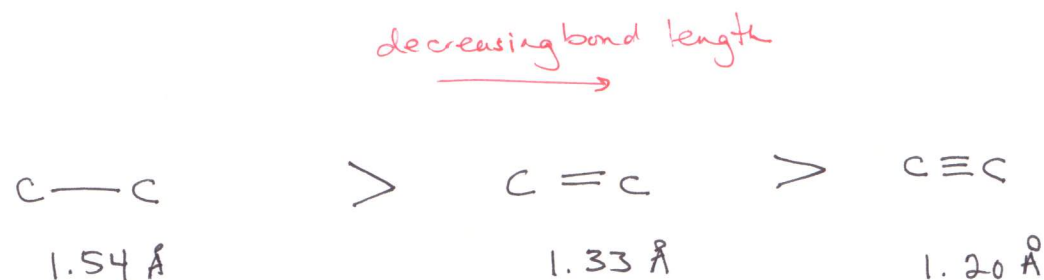 decreasing bond length
C—C > C=C > C≡C
1.54 Å 1.33 Å 1.20 Å